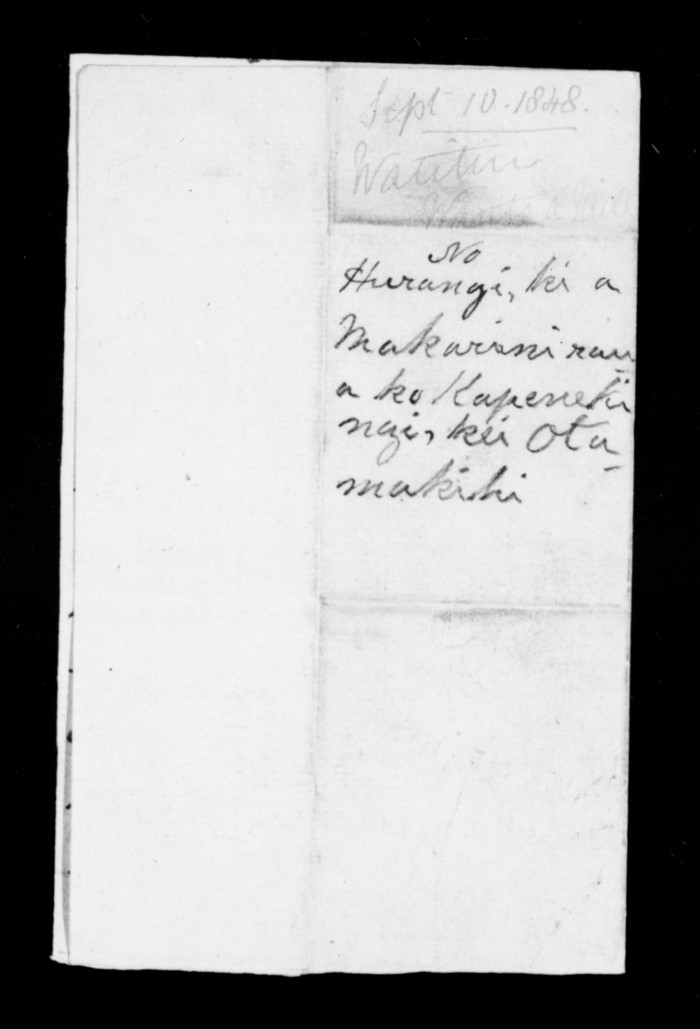 Sept 10. 1848.
Watitiri
No
Hurangi, ki a
Makarini rau
a ko Kapeneti
ngi, kei Ota-
makihi